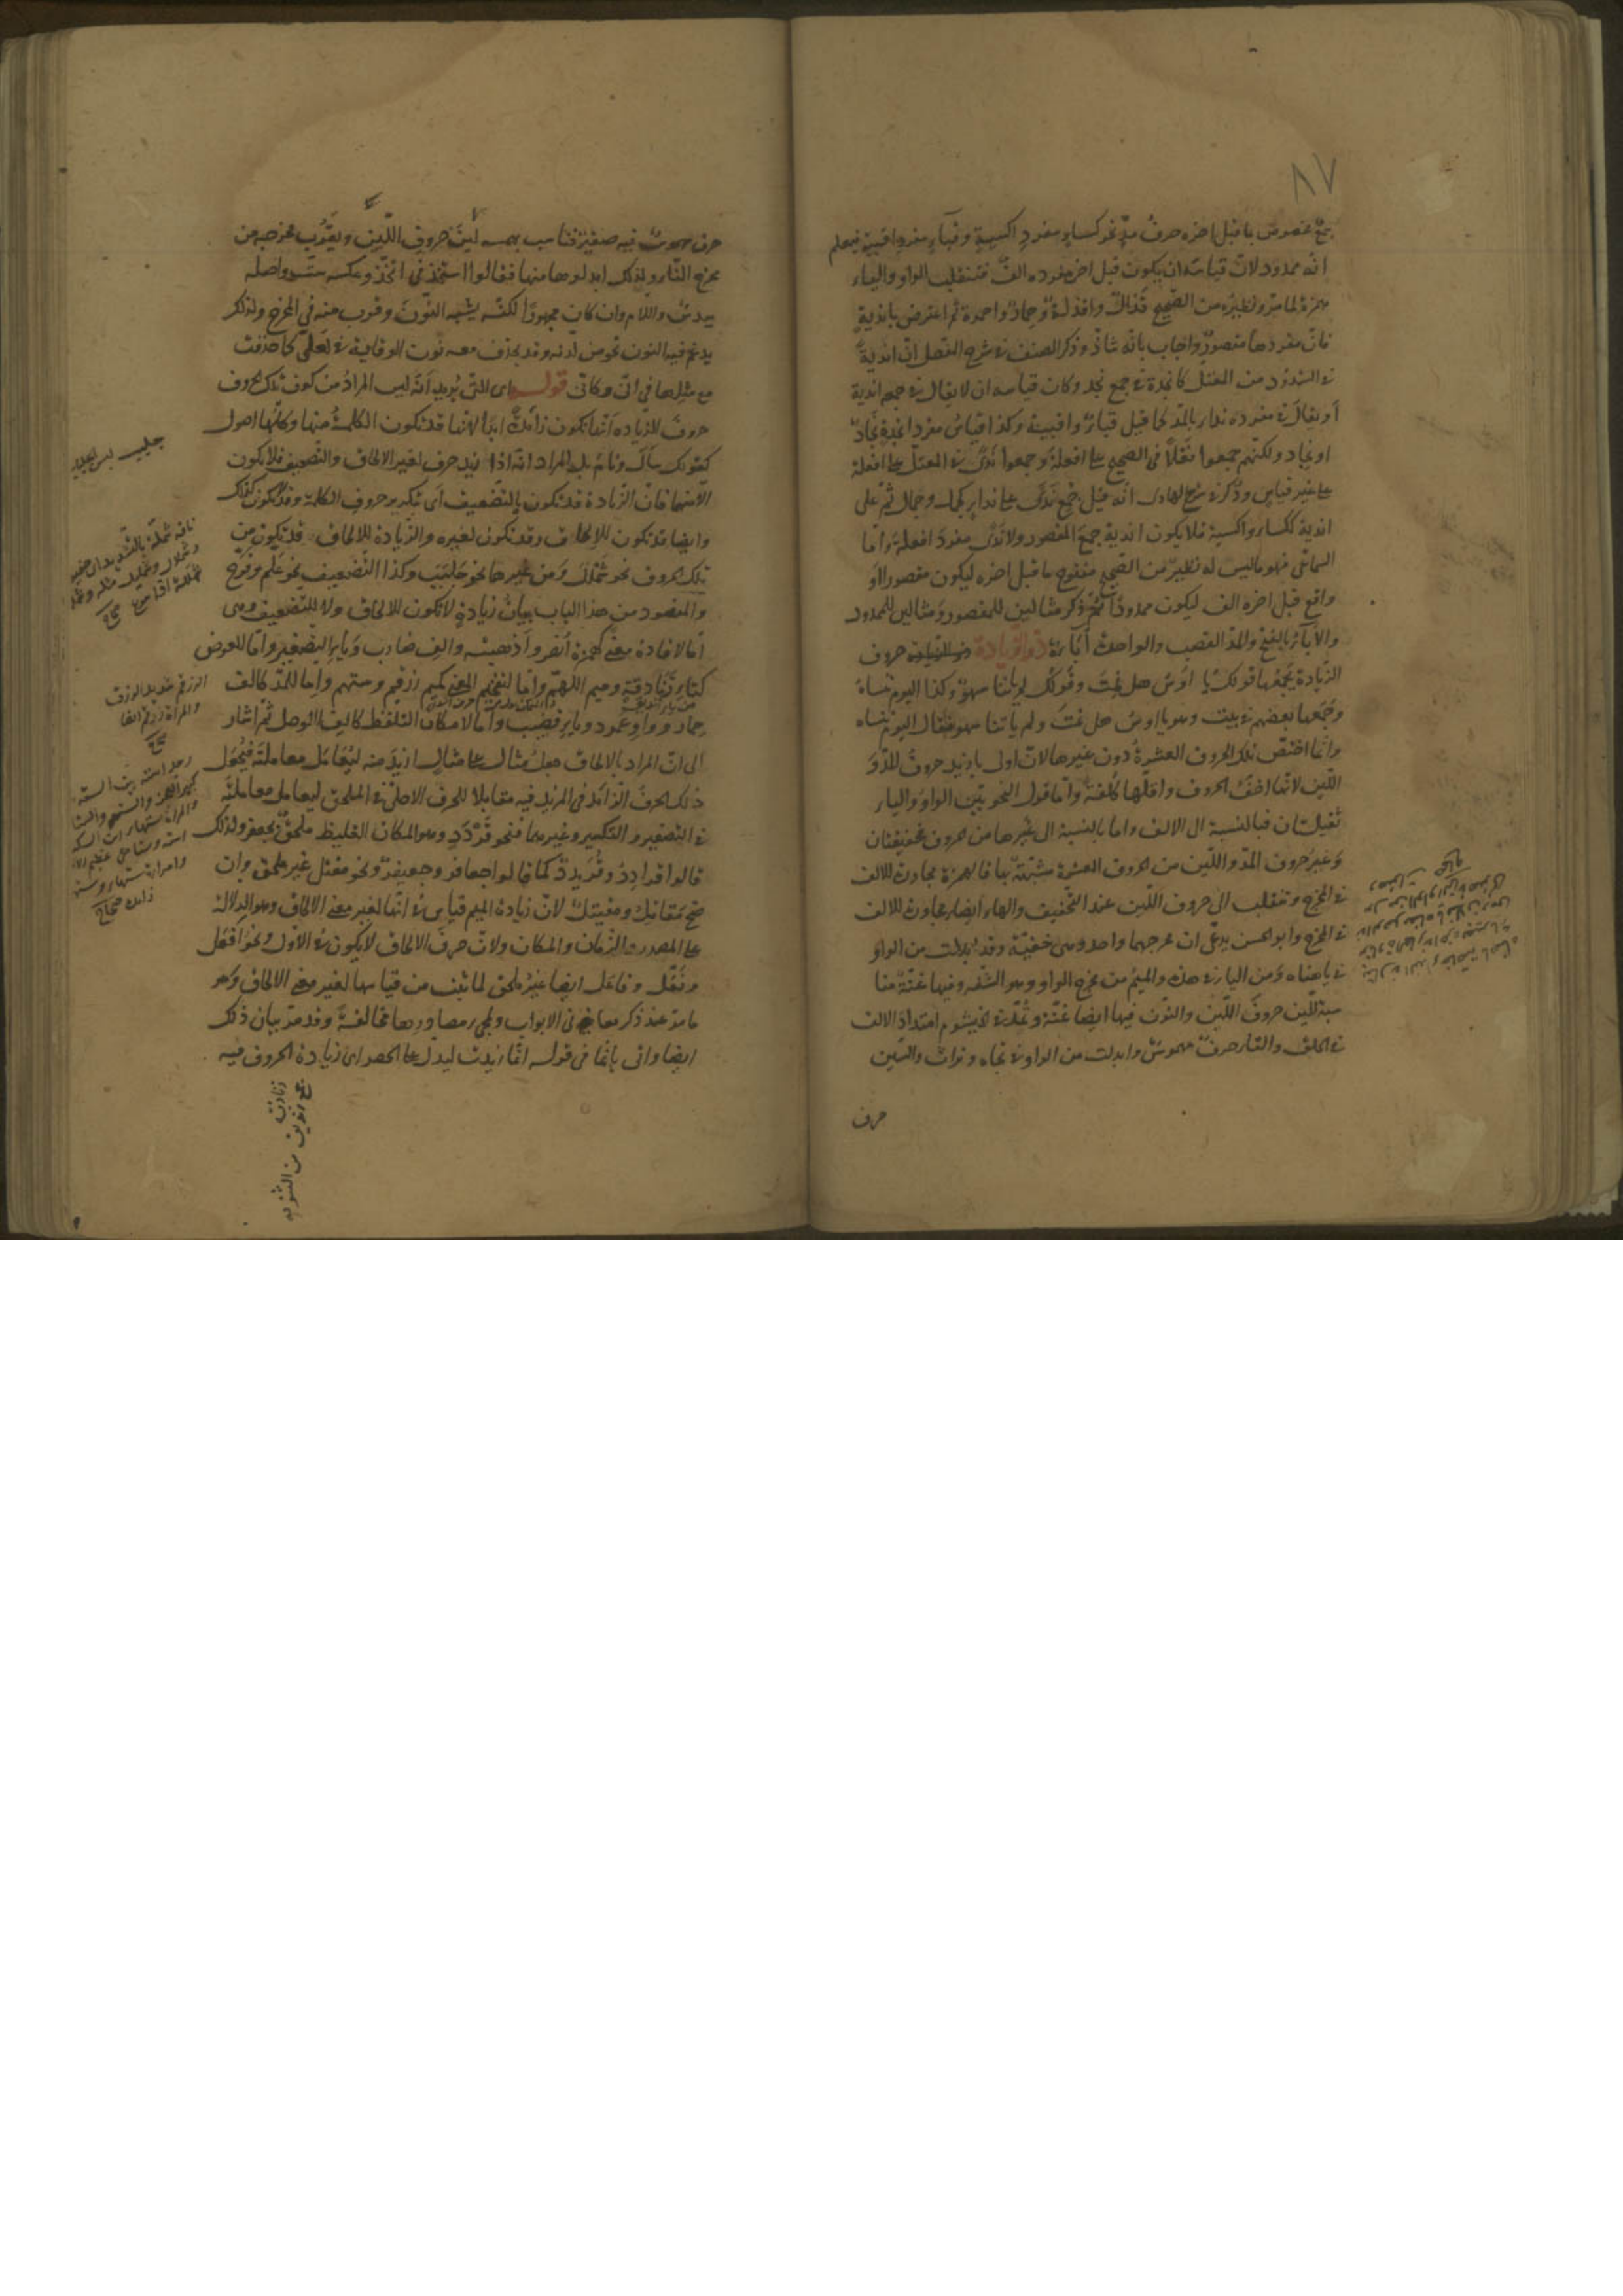 ٨٧
جمع مخصوص ما قبل اخره حرف مدّ نحو كساء مفرد اكسية وقباء مفرد اقبية فيعلم
انه ممدود لان قياسه ان يكون قبل اخر مفرده الف فتنقلب الواو والياء
همزة لما مر ونظيره من الصحيح قذال واقذلة وحمار واحمرة ثم اعترض باندية
فان مفردها مقصور واجاب بانه شاذ وذكر المصنف في شرح المفصل ان اندية
في الشذوذ من المعتل كانجدة في جمع نجد وكان قياسه ان لا يقال في جمعه اندية
او يقال في مفرده نداء بالمد كما قيل قباء واقبية وكذا قياس مفرد انجدة نجاد
او نجاد ولكنهم جمعوا فعلا في الصحيح على افعلة وجمعوا ندى في المعتل على افعلة
على غير قياس وذكر في شرح الهادى انه قيل جمع ندى على نداء كجمل وجمال ثم على
اندية ككساء واكسية فلا يكون اندية جمع المقصور ولا ندى مفرد افعلة واما
السماعى فهو ما ليس له نظير من الصحيح مفتوح ما قبل اخره ليكون مقصورا او
واقع قبل اخره الف ليكون ممدودا ثم ذكر مثالين للمقصور ومثالين للممدود
والأباء بالفتح والمد القصب والواحدة أباءة ذو الزيادة حروف
الزيادة يجمعها قولك يا اوس هل نمت وقولك لم ياتنا سهو وكذا اليوم تنساه
وجمعها بعضهم في بيت وهو يا اوس هل نمت ولم ياتنا سهو فقال اليوم تنساه
وانما اختص تلك الحروف العشرة دون غيرها لان اولى ما زيد حروف المد و
اللين لانها اخف الحروف واقلها كلفة واما قول النحويين الواو والياء
ثقيلتان فبالنسبة الى الالف واما بالنسبة الى غيرها من الحروف فخفيفتان
وغير حروف المد واللين من الحروف العشرة مشبهة بها فالهمزة مجاورة للالف
في المخرج وتنقلب الى حروف اللين عند التخفيف والهاء ايضا مجاورة للالف
في المخرج وابو الحسن يدعى ان مخرجهما واحد وهى خفية وقد ابدلت من الواو
في يا هناه ومن الياء في هذه والميم من مخرج الواو وهو الشفة وفيها غنة منا
سبة للين حروف اللين والنون فيها ايضا غنة وتمتد في الخيشوم امتداد الالف
في الحلق والتاء حرف مهموس وابدلت من الواو في تجاه وتراث والسين
حرف
حرف مهموس فيه صفير فناسب بهمسه لين حروف اللين ويقرب مخرجه من
مخرج التاء ولذلك ابدلوها منها فقالوا استخذ في اتخذ وعكسه ست واصله
سدس واللام وان كان مجهورا لكنه يشبه النون وقرب منه في المخرج ولذلك
يدغم فيه النون نحو من لدنه وقد يحذف معه نون الوقاية في لعلى كما حذفت
مع مثلها في انى وكانى قوله اى التى يريد انه ليس المراد من كون تلك الحروف
حروف الزيادة انها تكون زائدة ابدا لانها قد تكون الكلمة منها وكلها اصول
كقولك سأل ونام بل المراد انه اذا زيد حرف لغير الالحاق والتضعيف فلا يكون
الا منها فان الزيادة قد تكون بالتضعيف اى بتكرير حروف الكلمة وقد تكون كذلك
وايضا قد تكون للالحاق وقد تكون لغيره والزيادة للالحاق قد تكون من
تلك الحروف نحو شملل ومن غيرها نحو جلبب وكذا التضعيف نحو علم وفرح
والمقصود من هذا الباب بيان زيادة لا تكون للالحاق ولا للتضعيف وهى
اما لافادة معنى كهمزة أنصر واذهبته والف ضارب وياء التصغير واما للعوض
كتاء زنادقة وميم اللهم واما لتفخيم المعنى كميم زرقم وستهم واما للمد كالف
حمار وواو عمود وياء قضيب واما لامكان التلفظ كالف الوصل ثم اشار
الى ان المراد بالالحاق جعل مثال على مثال ازيد منه ليعامل معاملته فيجعل
ذلك الحرف الزائد في المزيد فيه مقابلا للحرف الاصلى في الملحق ليعامل معاملته
في التصغير والتكسير وغيرهما فنحو قردد وهو المكان الغليظ ملحق بجعفر ولذلك
قالوا قرادد وقريدد كما قالوا جعافر وجعيفر ونحو مقتل غير ملحق وان
صح مقاتل ومقيتل لان زيادة الميم قياس في انها لغير معنى الالحاق وهو الدلالة
على المصدر والزمان والمكان ولان حرف الالحاق لا يكون في الاول ونحو افعل
وفعل وفاعل ايضا غير ملحق لما ثبت من قياسها لغير معنى الالحاق وهو
ما مر عند ذكر معانى الابواب ولمجىء مصادرها مخالفة وقد مر بيان ذلك
ايضا واتى بانما في قوله انما زيدت ليدل على الحصر اى زيادة الحروف فيه
ناقة شملة بالتشديد اى خفيفة
وشملال وشمليل مثله
صحاح
الزرقم شديد الزرق
والمرأة زرقم ايضا
صحاح